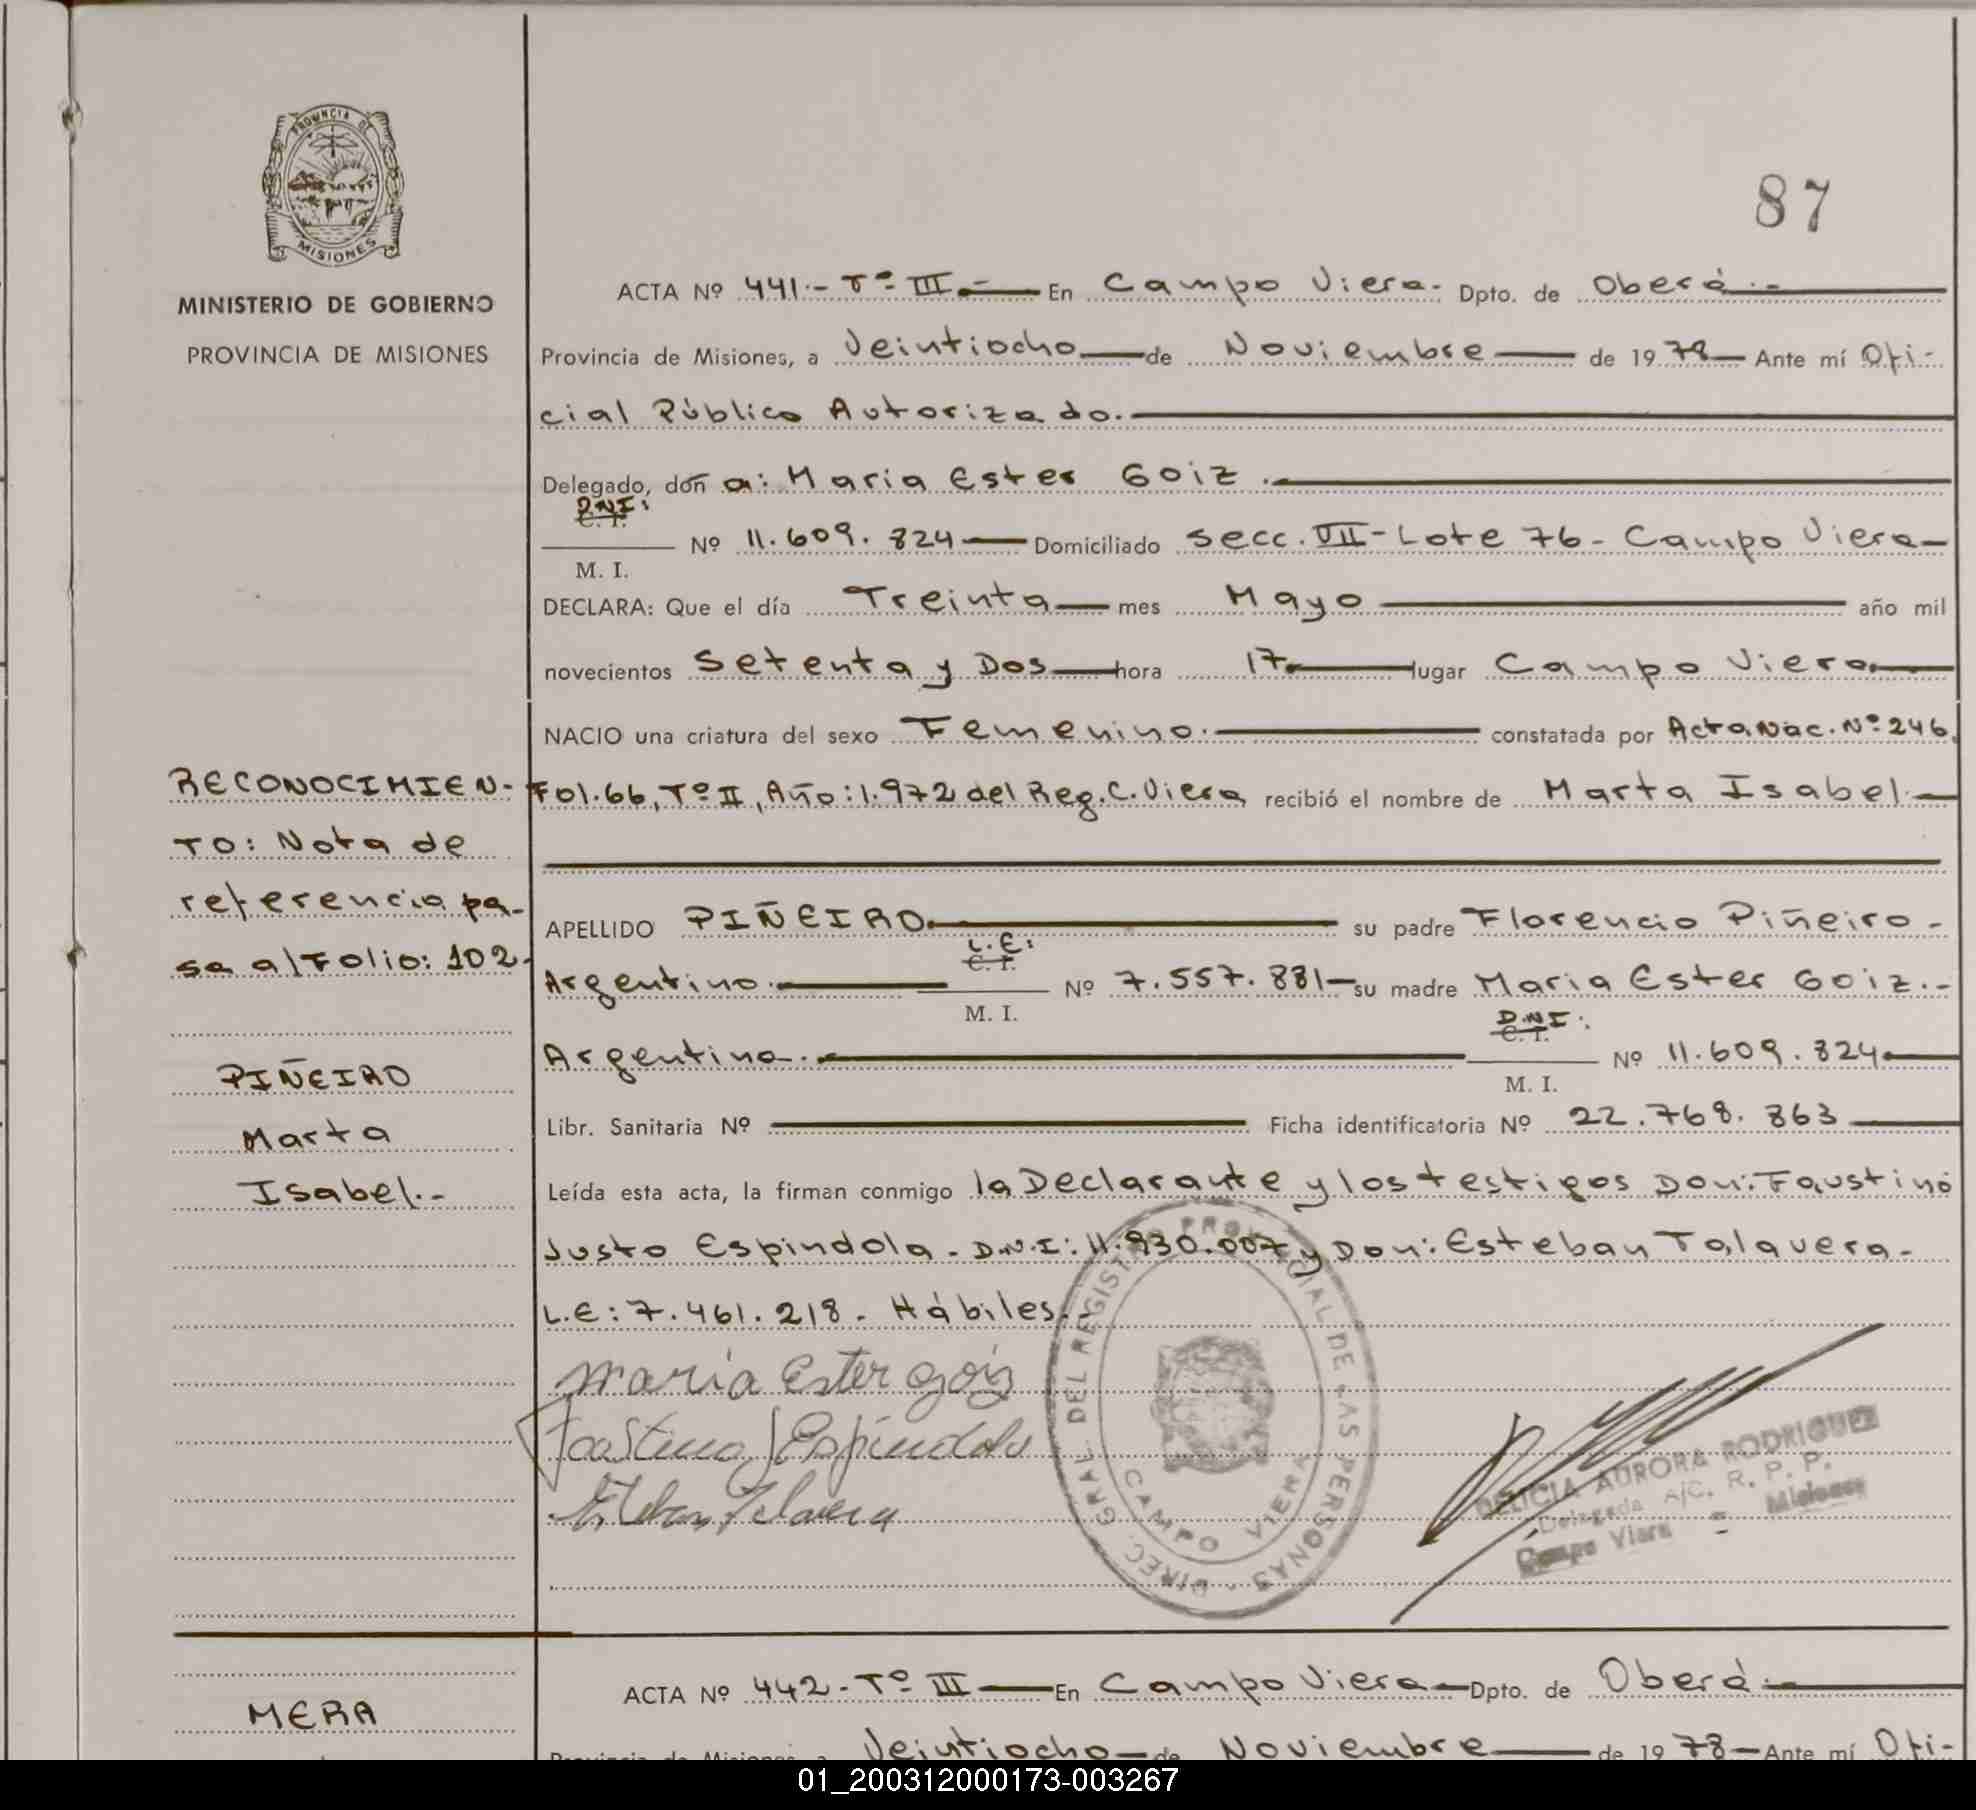 PROVINCIA DE
MISIONES
MINISTERIO DE GOBIERNO
PROVINCIA DE MISIONES
87
ACTA Nº 441.- Tº III.- En Campo Viera. Dpto. de Oberá.-
Provincia de Misiones, a Veintiocho de Noviembre de 1978 Ante mí Ofi-
cial Público Autorizado.
Delegado, don a: Maria Ester Goiz.
D.N.I:
C. I.
Nº 11.609.824 Domiciliado Secc. VII - Lote 76 - Campo Viera
M. I.
DECLARA: Que el día Treinta mes Mayo año mil
novecientos Setenta y Dos hora 17 lugar Campo Viera
NACIO una criatura del sexo Femenino. constatada por Acta Nac. Nº 246.
RECONOCIMIEN-
TO: Nota de
referencia pa-
sa al Folio: 102.
PIÑEIRO
Marta
Isabel.-
Fol. 66, Tº II, Año: 1.972 del Reg. C. Viera recibió el nombre de Marta Isabel.
APELLIDO PIÑEIRO. su padre Florencio Piñeiro.
L.E:
C. I.
Argentino. Nº 7.557.881 su madre Maria Ester Goiz.-
M. I.
D.N.I:
C. I.
Argentina. Nº 11.609.824
M. I.
Libr. Sanitaria Nº Ficha identificatoria Nº 22.768.863
Leída esta acta, la firman conmigo la Declarante y los testigos Don: Faustino
Justo Espindola. D.N.I: 11.930.007 y Don: Esteban Talavera.
L.E: 7.461.218. Hábiles.
Maria Ester Goiz
Faustino J Espíndola
Esteban Talavera
DIREC. GRAL. DEL REGISTRO PROVINCIAL DE LAS PERSONAS
CAMPO VIERA
DELICIA AURORA RODRIGUEZ
Delegada A/C. R. P. P.
Campo Viera - Misiones
MERA
ACTA Nº 442 - Tº III En Campo Viera Dpto. de Oberá.
Provincia de Misiones, a Veintiocho de Noviembre de 1978 Ante mí Ofi-
01_200312000173-003267